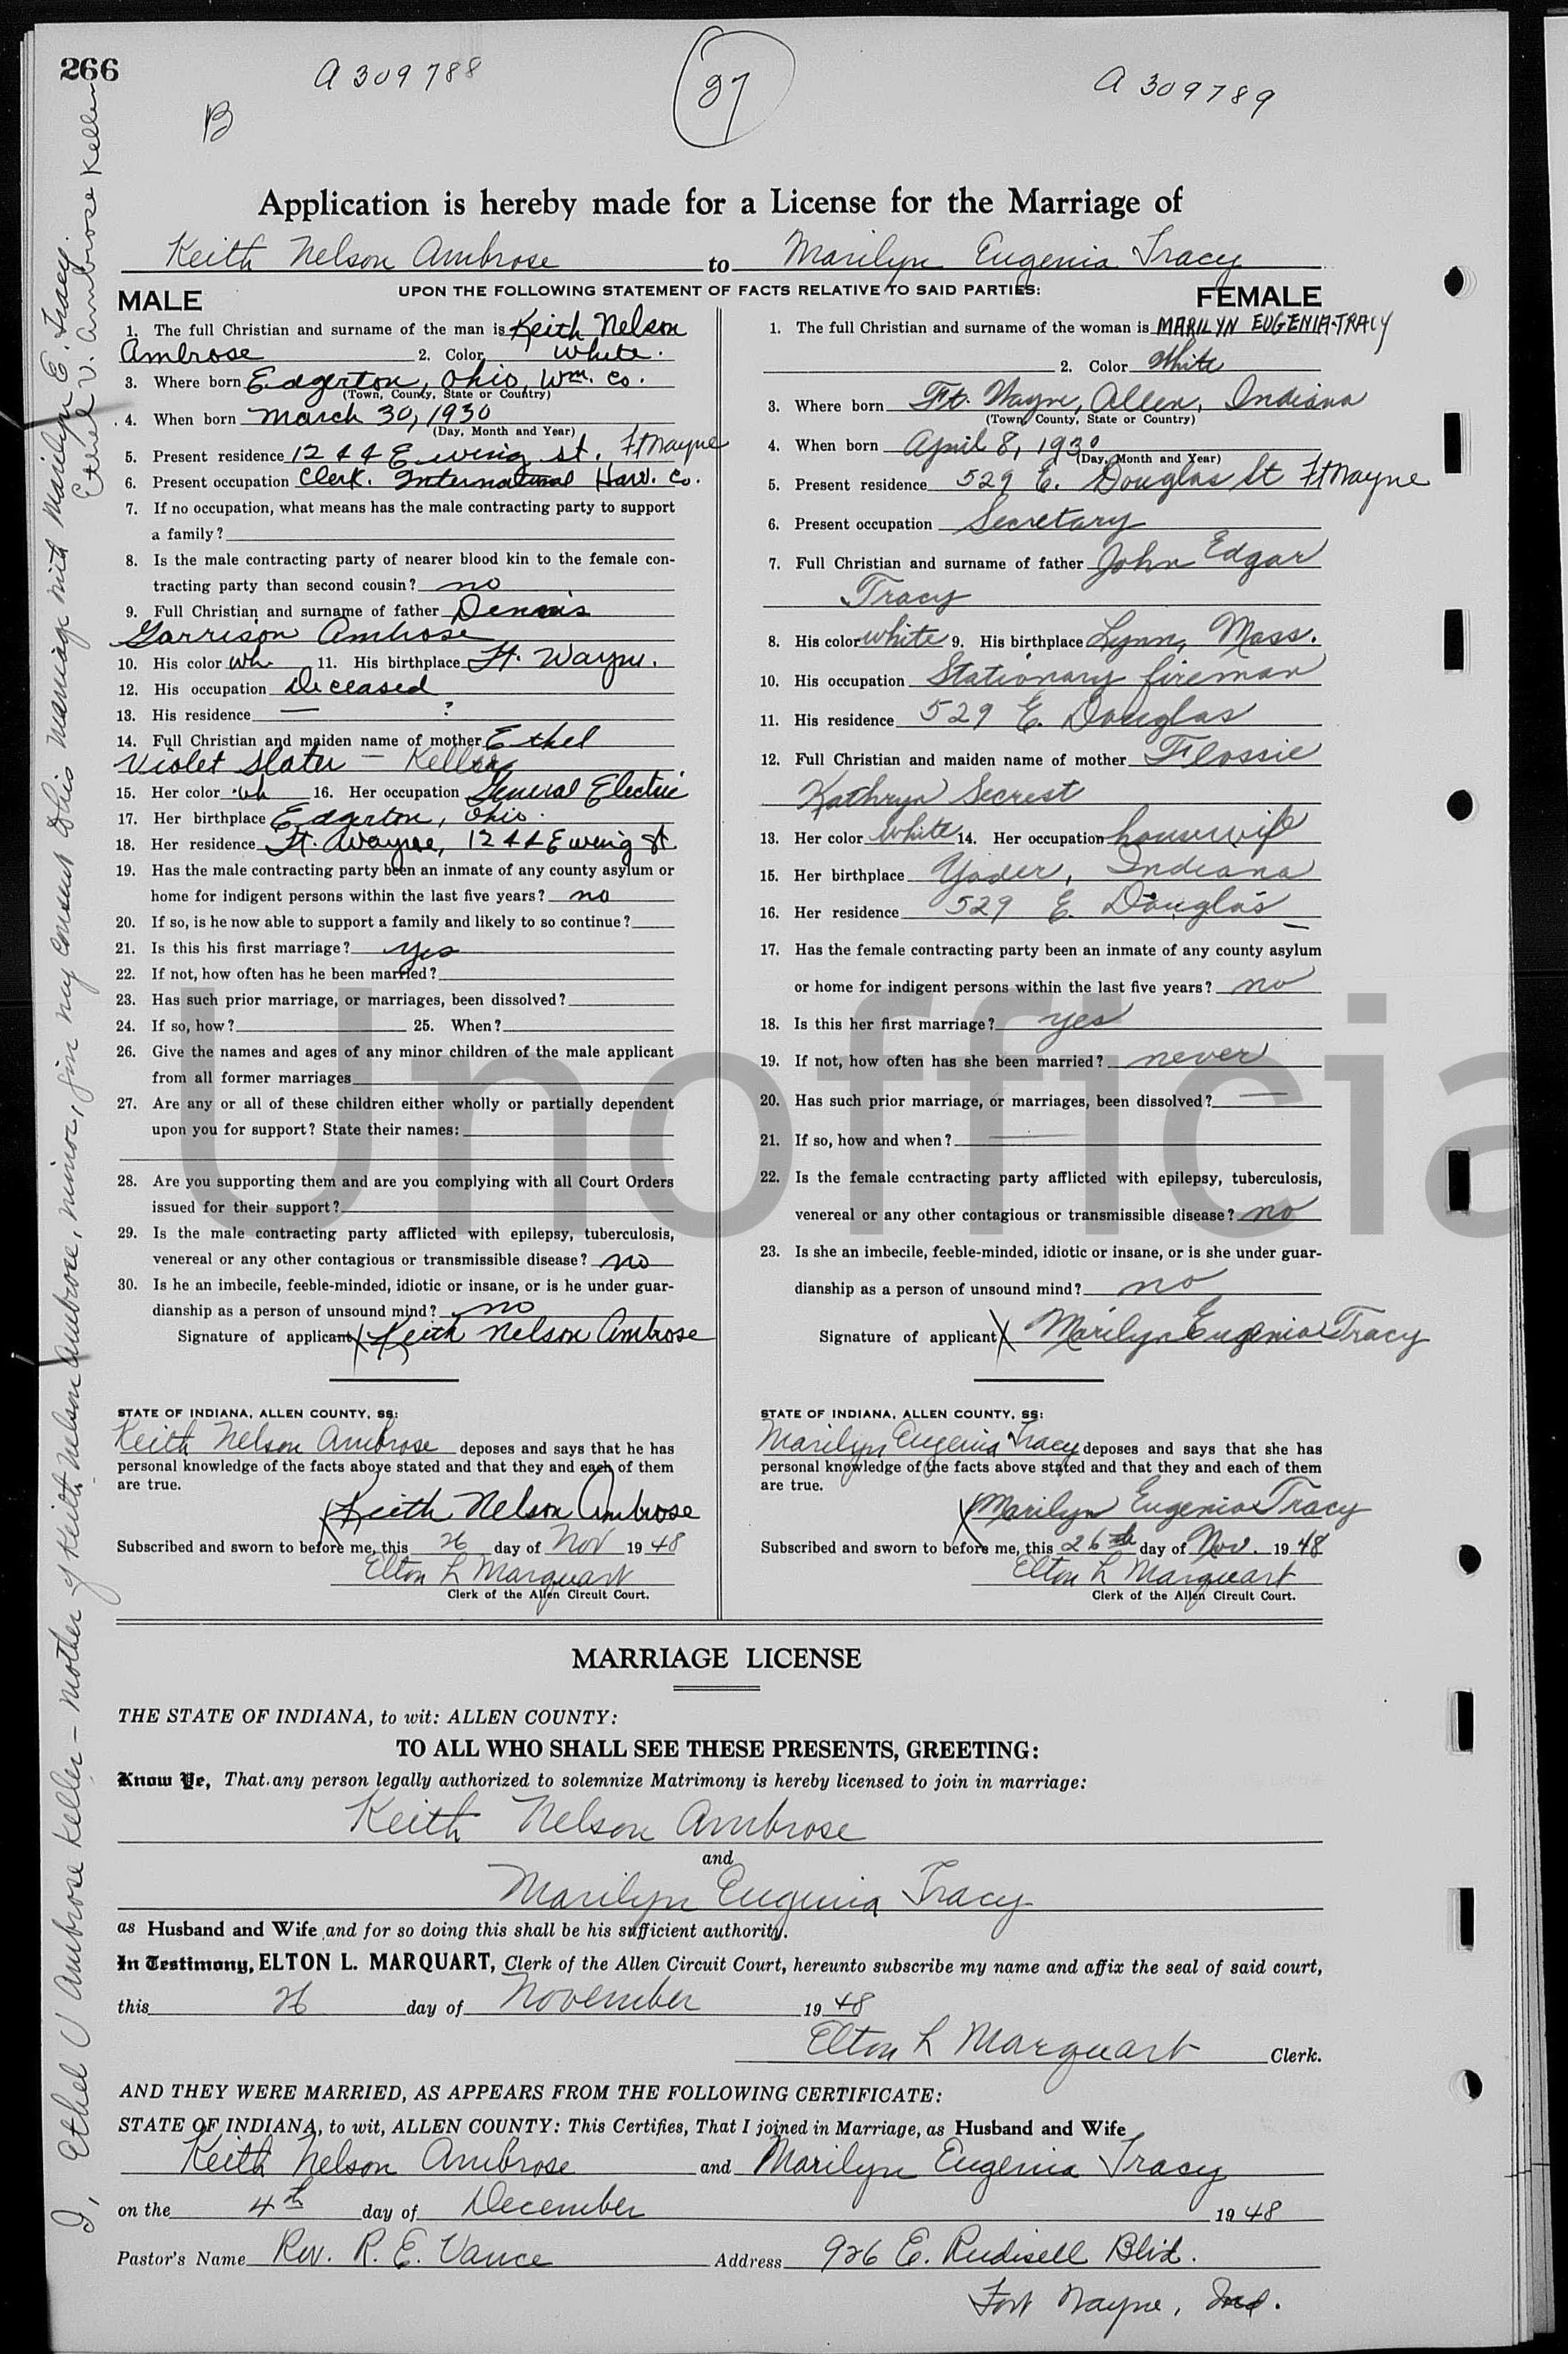 266
A 309788
B
27
A 309789
Application is hereby made for a License for the Marriage of
Keith Nelson Ambrose to Marilyn Eugenia Tracy
UPON THE FOLLOWING STATEMENT OF FACTS RELATIVE TO SAID PARTIES:
MALE
1. The full Christian and surname of the man is Keith Nelson
Ambrose 2. Color White.
3. Where born Edgerton, Ohio, Wm. Co.
(Town, County, State or Country)
4. When born March 30, 1930
(Day, Month and Year)
5. Present residence 1244 Ewing st. Ft Wayne
6. Present occupation Clerk. International Harv. Co.
7. If no occupation, what means has the male contracting party to support
a family?
8. Is the male contracting party of nearer blood kin to the female con-
tracting party than second cousin? no
9. Full Christian and surname of father Dennis
Garrison Ambrose
10. His color wh. 11. His birthplace Ft. Wayne.
12. His occupation Deceased
13. His residence — ?
14. Full Christian and maiden name of mother Ethel
Violet Slater — Keller
15. Her color wh 16. Her occupation General Electric
17. Her birthplace Edgerton, Ohio.
18. Her residence Ft. Wayne, 1244 Ewing St.
19. Has the male contracting party been an inmate of any county asylum or
home for indigent persons within the last five years? no
20. If so, is he now able to support a family and likely to so continue?
21. Is this his first marriage? yes
22. If not, how often has he been married?
23. Has such prior marriage, or marriages, been dissolved?
24. If so, how? 25. When?
26. Give the names and ages of any minor children of the male applicant
from all former marriages
27. Are any or all of these children either wholly or partially dependent
upon you for support? State their names:
28. Are you supporting them and are you complying with all Court Orders
issued for their support?
29. Is the male contracting party afflicted with epilepsy, tuberculosis,
venereal or any other contagious or transmissible disease? no
30. Is he an imbecile, feeble-minded, idiotic or insane, or is he under guar-
dianship as a person of unsound mind? no
Signature of applicant X Keith Nelson Ambrose
STATE OF INDIANA, ALLEN COUNTY, SS:
Keith Nelson Ambrose deposes and says that he has
personal knowledge of the facts above stated and that they and each of them
are true.
X Keith Nelson Ambrose
Subscribed and sworn to before me, this 26 day of Nov 1948
Elton L Marquart
Clerk of the Allen Circuit Court.
FEMALE
1. The full Christian and surname of the woman is MARILYN EUGENIA TRACY
2. Color White
3. Where born Ft. Wayne, Allen, Indiana
(Town, County, State or Country)
4. When born April 8, 1930
(Day, Month and Year)
5. Present residence 529 E. Douglas St Ft Wayne
6. Present occupation Secretary
7. Full Christian and surname of father John Edgar
Tracy
8. His color white 9. His birthplace Lynn, Mass.
10. His occupation Stationary fireman
11. His residence 529 E. Douglas
12. Full Christian and maiden name of mother Flossie
Kathryn Secrest
13. Her color White 14. Her occupation housewife
15. Her birthplace Yoder, Indiana
16. Her residence 529 E. Douglas
17. Has the female contracting party been an inmate of any county asylum
or home for indigent persons within the last five years? no
18. Is this her first marriage? yes
19. If not, how often has she been married? never
20. Has such prior marriage, or marriages, been dissolved? —
21. If so, how and when? —
22. Is the female contracting party afflicted with epilepsy, tuberculosis,
venereal or any other contagious or transmissible disease? no
23. Is she an imbecile, feeble-minded, idiotic or insane, or is she under guar-
dianship as a person of unsound mind? no
Signature of applicant X Marilyn Eugenia Tracy
STATE OF INDIANA, ALLEN COUNTY, SS:
Marilyn Eugenia Tracy deposes and says that she has
personal knowledge of the facts above stated and that they and each of them
are true.
X Marilyn Eugenia Tracy
Subscribed and sworn to before me, this 26th day of Nov. 1948
Elton L Marquart
Clerk of the Allen Circuit Court.
MARRIAGE LICENSE
THE STATE OF INDIANA, to wit: ALLEN COUNTY:
TO ALL WHO SHALL SEE THESE PRESENTS, GREETING:
Know Ye, That any person legally authorized to solemnize Matrimony is hereby licensed to join in marriage:
Keith Nelson Ambrose
and
Marilyn Eugenia Tracy
as Husband and Wife and for so doing this shall be his sufficient authority.
In Testimony, ELTON L. MARQUART, Clerk of the Allen Circuit Court, hereunto subscribe my name and affix the seal of said court,
this 26 day of November 1948
Elton L Marquart Clerk.
AND THEY WERE MARRIED, AS APPEARS FROM THE FOLLOWING CERTIFICATE:
STATE OF INDIANA, to wit, ALLEN COUNTY: This Certifies, That I joined in Marriage, as Husband and Wife
Keith Nelson Ambrose and Marilyn Eugenia Tracy
on the 4th day of December 1948
Pastor's Name Rev. R. E. Vance Address 926 E. Rudisell Blvd.
Fort Wayne, Ind.
I, Ethel V Ambrose Keller - mother of Keith Nelson Ambrose, minor, giv my consent to his marriage with Marilyn E. Tracy.
Ethel V. Ambrose Keller
Unofficia